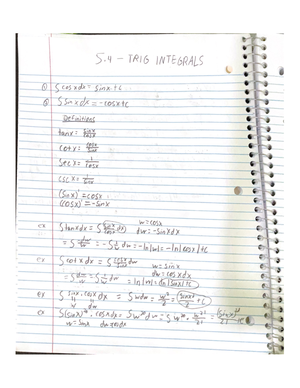 5.4 - TRIG INTEGRALS
① ∫cosxdx = sinx+c
② ∫sinxdx = -cosx+c
Definitions
tanx = sinx/cosx
cotx = cosx/sinx
secx = 1/cosx
cscx = 1/sinx
(sinx)' = cosx
(cosx)' = -sinx
ex ∫tanxdx = ∫sinx/cosx dx) w=cosx
dw=-sinxdx
= ∫-dw/w = -∫1/w dw = -ln|w| = -ln|cosx|+c
ex ∫cotxdx = ∫cosx/sinx dx w=sinx
dw=cosxdx
= ∫dw/w = ∫1/w dw = ln|w| = ln|sinx|+c
ex ∫sinx·cosxdx = ∫wdw = w²/2 = (sinx)²/2 +c
w dw
ex ∫(sinx)²⁰·cosxdx = ∫w²⁰dw = w²¹/21 = (sinx)²¹/21 +c
w=sinx dw=cosxdx